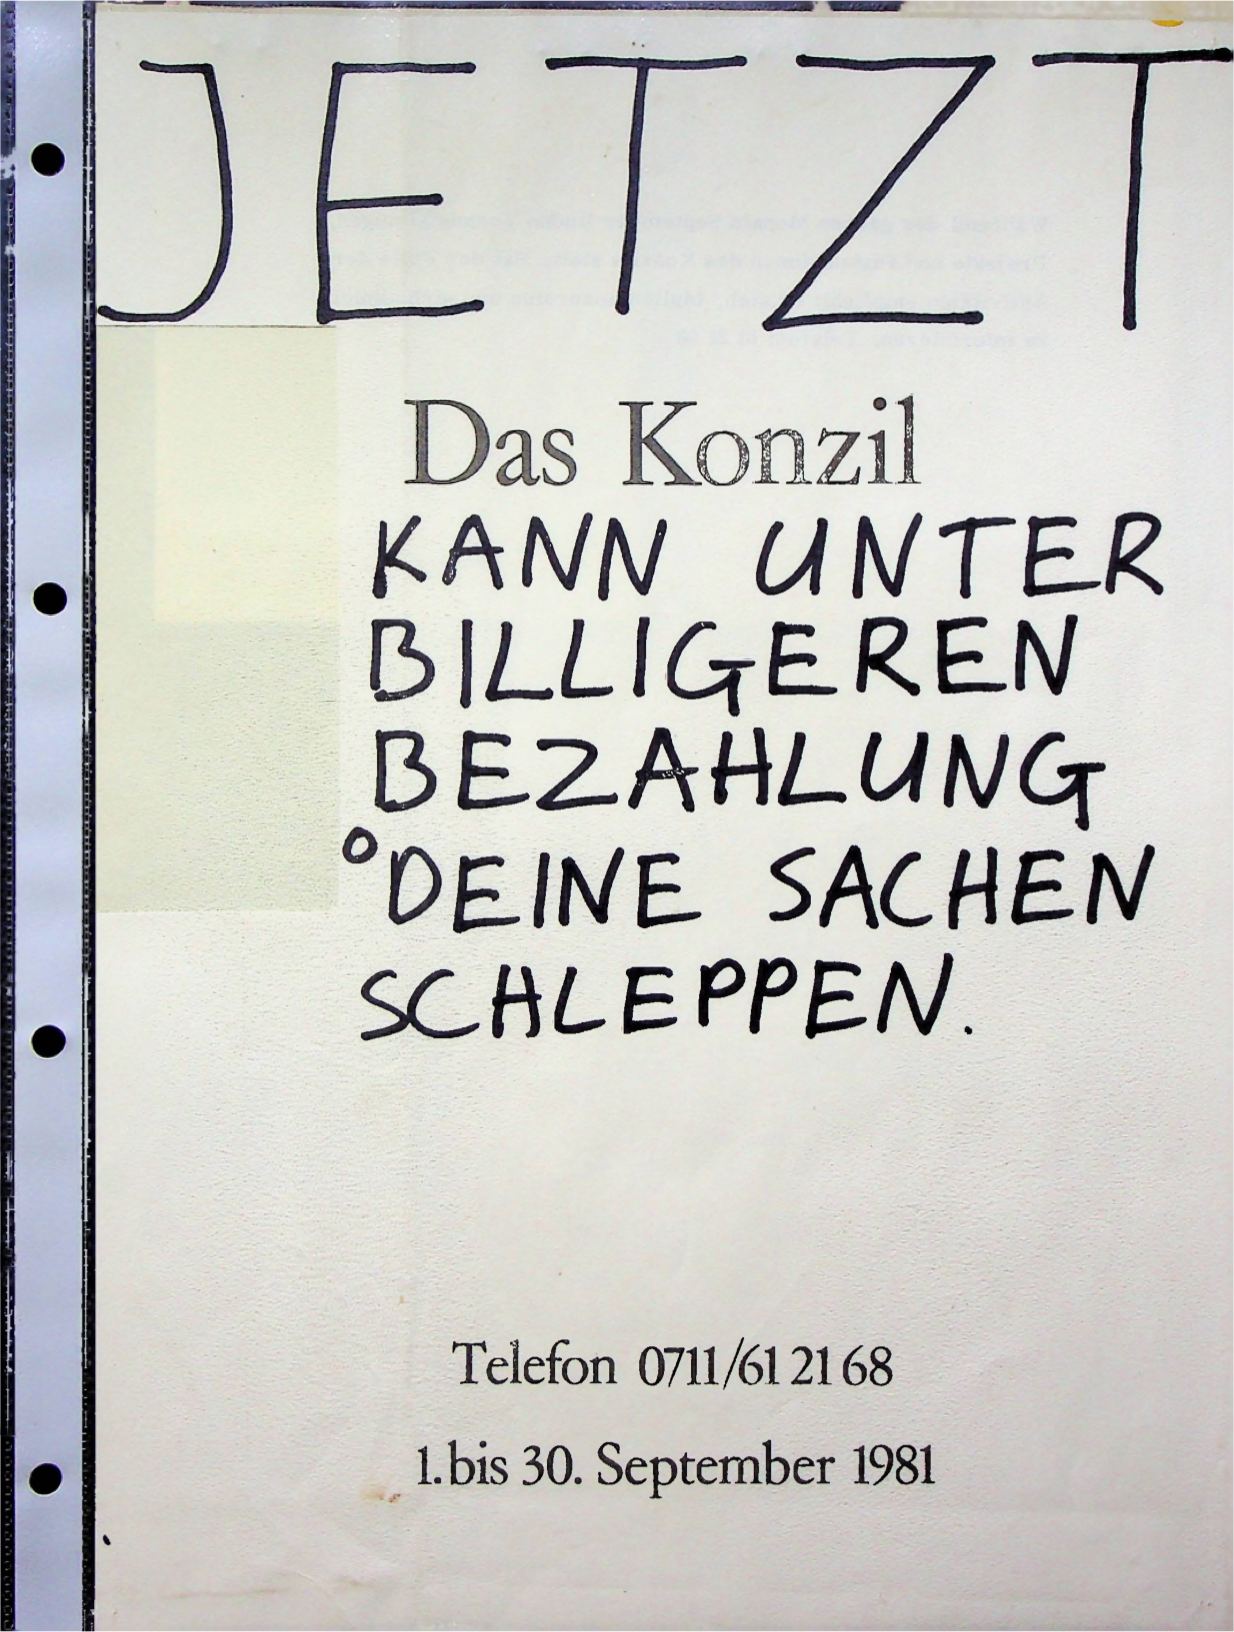 JETZT
Das Konzil
KANN UNTER
BILLIGEREN
BEZAHLUNG
°DEINE SACHEN
SCHLEPPEN.
Telefon 0711/61 21 68
1. bis 30. September 1981